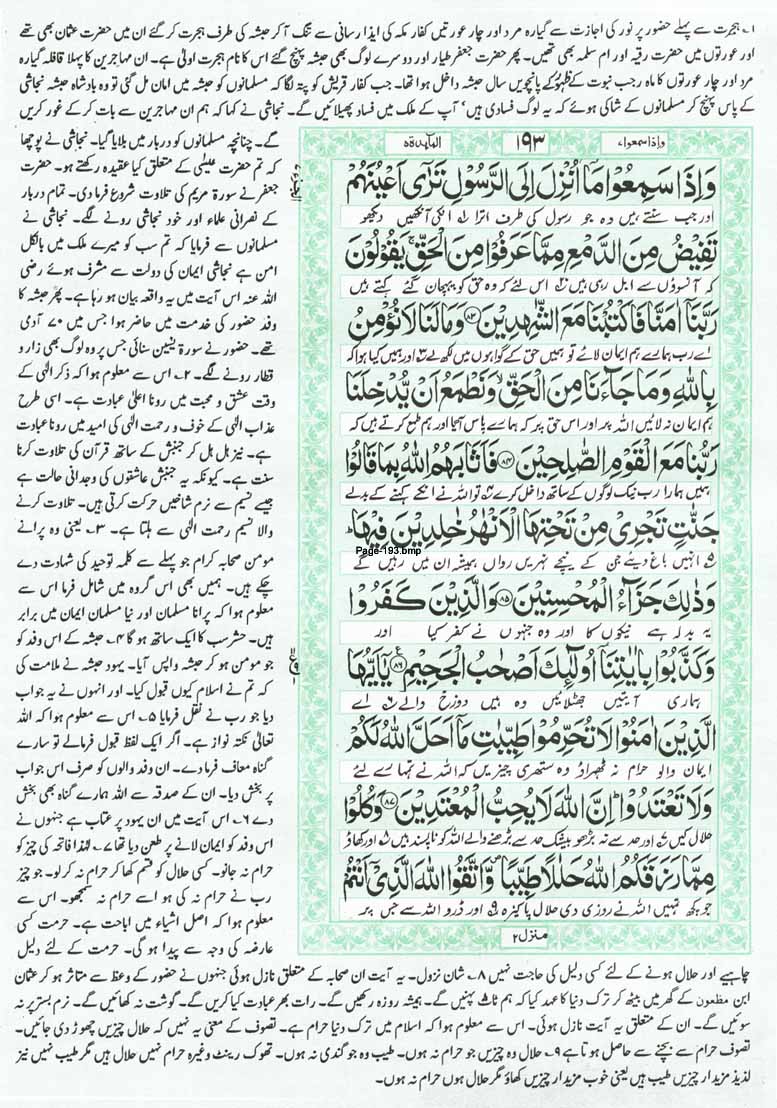 ۱۔ ہجرت سے پہلے حضور پر نور کی اجازت سے گیارہ مرد اور چار عورتیں کفار مکہ کی ایذا رسانی سے تنگ آ کر حبشہ کی طرف ہجرت کر گئے ان میں حضرت عثمان بھی تھے
اور عورتوں میں حضرت رقیہ اور ام سلمہ بھی تھیں۔ پھر حضرت جعفر طیار اور دوسرے لوگ بھی حبشہ پہنچ گئے اس کا نام ہجرت اولیٰ ہے۔ ان مہاجرین کا پہلا قافلہ گیارہ
مرد اور چار عورتوں کا ماہ رجب نبوت کے ظہور کے پانچویں سال حبشہ داخل ہوا تھا۔ جب کفار قریش کو پتہ لگا کہ مسلمانوں کو حبشہ میں امان مل گئی تو وہ بادشاہ حبشہ نجاشی
کے پاس پہنچ کر مسلمانوں کے شاکی ہوئے کہ یہ لوگ فسادی ہیں' آپ کے ملک میں فساد پھیلائیں گے۔ نجاشی نے کہا کہ ہم ان مہاجرین سے بات کر کے غور کریں
وَاِذَا سَمِعُوا ۷
۱۹۳
المآئدۃ ۵
وَاِذَا سَمِعُوْا مَاۤ اُنْزِلَ اِلَى الرَّسُوْلِ تَرٰۤى اَعْیُنَهُمْ
اور جب سنتے ہیں وہ جو رسول کی طرف اترا ان کی آنکھیں دیکھو
تَفِیْضُ مِنَ الدَّمْعِ مِمَّا عَرَفُوْا مِنَ الْحَقِّۚ یَقُوْلُوْنَ
کہ آنسوؤں سے ابل رہی ہیں اس لئے کہ وہ حق کو پہچان گئے کہتے ہیں
رَبَّنَاۤ اٰمَنَّا فَاكْتُبْنَا مَعَ الشّٰهِدِیْنَ ۝۸۳ وَمَا لَنَا لَا نُؤْمِنُ
اے رب ہمارے ہم ایمان لائے تو ہمیں حق کے گواہوں میں لکھ لے اور ہمیں کیا ہوا کہ
بِاللّٰهِ وَمَا جَآءَنَا مِنَ الْحَقِّۙ وَنَطْمَعُ اَنْ یُّدْخِلَنَا
ہم ایمان نہ لائیں اللہ پر اور اس حق پر کہ ہمارے پاس آیا اور ہم طمع کرتے ہیں کہ
رَبُّنَا مَعَ الْقَوْمِ الصّٰلِحِیْنَ ۝۸۴ فَاَثَابَهُمُ اللّٰهُ بِمَا قَالُوْا
ہمیں ہمارا رب نیک لوگوں کے ساتھ داخل کرے تو اللہ نے انکے کہنے کے بدلے
جَنّٰتٍ تَجْرِیْ مِنْ تَحْتِهَا الْاَنْهٰرُ خٰلِدِیْنَ فِیْهَاؕ
Page-193.bmp
انہیں باغ دیئے جن کے نیچے نہریں رواں ہمیشہ ان میں رہیں گے
وَذٰلِكَ جَزَآءُ الْمُحْسِنِیْنَ ۝۸۵ وَالَّذِیْنَ كَفَرُوْا
یہ بدلہ ہے نیکوں کا اور وہ جنہوں نے کفر کیا اور
وَكَذَّبُوْا بِاٰیٰتِنَاۤ اُولٰٓىِٕكَ اَصْحٰبُ الْجَحِیْمِ ۝۸۶ یٰۤاَیُّهَا
ہماری آیتیں جھٹلائیں وہ ہیں دوزخ والے اے
الَّذِیْنَ اٰمَنُوْا لَا تُحَرِّمُوْا طَیِّبٰتِ مَاۤ اَحَلَّ اللّٰهُ لَكُمْ
ایمان والو حرام نہ ٹھہراؤ وہ ستھری چیزیں کہ اللہ نے تمہارے لئے
وَلَا تَعْتَدُوْاؕ اِنَّ اللّٰهَ لَا یُحِبُّ الْمُعْتَدِیْنَ ۝۸۷ وَكُلُوْا
حلال کیں اور حد سے نہ بڑھو بیشک حد سے بڑھنے والے اللہ کو ناپسند ہیں اور کھاؤ
مِمَّا رَزَقَكُمُ اللّٰهُ حَلٰلًا طَیِّبًا۪ وَّاتَّقُوا اللّٰهَ الَّذِیْۤ اَنْتُمْ
جو کچھ تمہیں اللہ نے روزی دی حلال پاکیزہ اور ڈرو اللہ سے جس پر
منزل ۲
گے۔ چنانچہ مسلمانوں کو دربار میں بلایا گیا۔ نجاشی نے پوچھا
کہ تم حضرت عیسیٰ کے متعلق کیا عقیدہ رکھتے ہو۔ حضرت
جعفر نے سورۃ مریم کی تلاوت شروع فرما دی۔ تمام دربار
کے نصرانی علماء اور خود نجاشی رونے لگے۔ نجاشی نے
مسلمانوں سے فرمایا کہ تم سب کو میرے ملک میں بالکل
امن ہے نجاشی ایمان کی دولت سے مشرف ہوئے رضی
اللہ عنہ اس آیت میں یہ واقعہ بیان ہو رہا ہے۔ پھر حبشہ کا
وفد حضور کی خدمت میں حاضر ہوا جس میں ۷۰ آدمی
تھے۔ حضور نے سورۃ یٰسین سنائی جس پر وہ لوگ بھی زار و
قطار رونے لگے۔ ۲۔ اس سے معلوم ہوا کہ ذکر الٰہی کے
وقت عشق و محبت میں رونا اعلیٰ عبادت ہے۔ اسی طرح
عذاب الٰہی کے خوف و رحمت الٰہی کی امید میں رونا عبادت
ہے۔ نیز ہل ہل کر جنبش کے ساتھ قرآن کی تلاوت کرنا
سنت ہے۔ کیونکہ یہ جنبش عاشقوں کی وجدانی حالت ہے
جیسے نسیم سے نرم شاخیں حرکت کرتی ہیں۔ تلاوت کرنے
والا نسیم رحمت الٰہی سے ہلتا ہے۔ ۳۔ یعنی وہ پرانے
مومن صحابہ کرام جو پہلے سے کلمہ توحید کی شہادت دے
چکے ہیں۔ ہمیں بھی اس گروہ میں شامل فرما اس سے
معلوم ہوا کہ پرانا مسلمان اور نیا مسلمان ایمان میں برابر
ہیں۔ حشر سب کا ایک ساتھ ہو گا ۴۔ حبشہ کے اس وفد کو
جو مومن ہو کر حبشہ واپس آیا۔ یہود حبشہ نے ملامت کی
کہ تم نے اسلام کیوں قبول کیا۔ اور انہوں نے یہ جواب
دیا جو رب نے نقل فرمایا ۵۔ اس سے معلوم ہوا کہ اللہ
تعالیٰ نکتہ نواز ہے۔ اگر ایک لفظ قبول فرمالے تو سارے
گناہ معاف فرما دے۔ ان وفد والوں کو صرف اس جواب
پر بخش دیا۔ ان کے صدقہ سے اللہ ہمارے گناہ بھی بخش
دے ۶۔ اس آیت میں ان یہود پر عتاب ہے جنہوں نے
اس وفد کو ایمان لانے پر طعن دیا تھا ۷۔ لہٰذا فاتحہ کی چیز کو
حرام نہ جانو۔ کسی حلال کو قسم کھا کر حرام نہ کر لو۔ جو چیز
رب نے حرام نہ کی ہو اسے حرام نہ سمجھو۔ اس سے
معلوم ہوا کہ اصل اشیاء میں اباحت ہے۔ حرمت کسی
عارضہ کی وجہ سے پیدا ہو گی۔ حرمت کے لئے دلیل
چاہیے اور حلال ہونے کے لئے کسی دلیل کی حاجت نہیں ۸۔ شان نزول۔ یہ آیت ان صحابہ کے متعلق نازل ہوئی جنہوں نے حضور کے وعظ سے متاثر ہو کر عثمان
ابن مظعون کے گھر میں بیٹھ کر ترک دنیا کا عہد کیا کہ ہم ٹاٹ پہنیں گے۔ ہمیشہ روزہ رکھیں گے۔ رات بھر عبادت کیا کریں گے۔ گوشت نہ کھائیں گے۔ نرم بستر پر نہ
سوئیں گے۔ ان کے متعلق یہ آیت نازل ہوئی۔ اس سے معلوم ہوا کہ اسلام میں ترک دنیا حرام ہے۔ تصوف کے معنی یہ نہیں کہ حلال چیزیں چھوڑ دی جائیں۔
تصوف حرام سے بچنے سے حاصل ہوتا ہے ۹۔ حلال وہ چیزیں جو حرام نہ ہوں۔ طیب وہ جو گندی نہ ہوں۔ تھوک رینٹ وغیرہ حرام نہیں حلال ہیں مگر طیب نہیں نیز
لذیذ مزیدار چیزیں طیب ہیں یعنی خوب مزیدار چیزیں کھاؤ مگر حلال ہوں حرام نہ ہوں۔